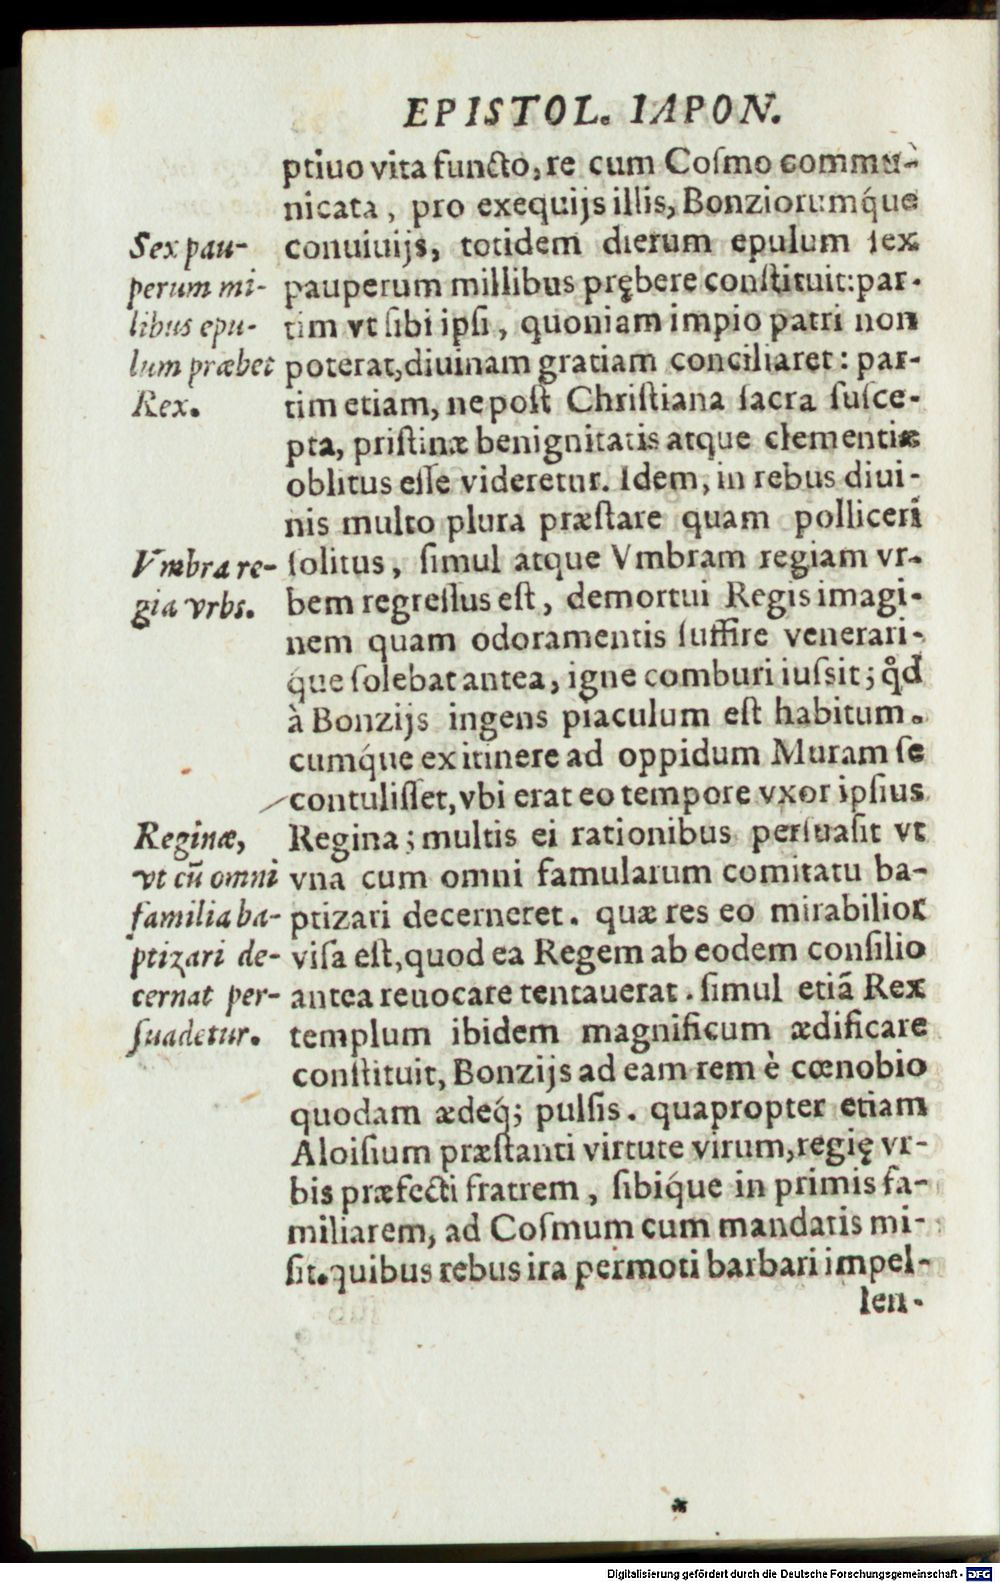 EPISTOL. IAPON.
ptiuo vita functo, re cum Coſmo commu-
nicata, pro exequijs illis, Bonziorumq́ue
conuiuijs, totidem dierum epulum ſex
pauperum millibus prębere conſtituit: par-
tim vt ſibi ipſi, quoniam impio patri non
poterat, diuinam gratiam conciliaret: par-
tim etiam, ne poſt Chriſtiana ſacra ſuſce-
pta, priſtinæ benignitatis atque clementiæ
oblitus eſſe videretur. Idem, in rebus diui-
nis multo plura præſtare quam polliceri
ſolitus, ſimul atque Vmbram regiam vr-
bem regreſſus eſt, demortui Regis imagi-
nem quam odoramentis ſuffire venerari-
q́ue ſolebat antea, igne comburi iuſsit; qd̊
à Bonzijs ingens piaculum eſt habitum.
cumq́ue ex itinere ad oppidum Muram ſe
contuliſſet, vbi erat eo tempore vxor ipſius
Regina; multis ei rationibus perſuaſit vt
vna cum omni famularum comitatu ba-
ptizari decerneret. quæ res eo mirabilior
viſa eſt, quod ea Regem ab eodem conſilio
antea reuocare tentauerat. ſimul etiã Rex
templum ibidem magnificum ædificare
conſtituit, Bonzijs ad eam rem è cœnobio
quodam ædeq́; pulſis. quapropter etiam
Aloiſium præſtanti virtute virum, regię vr-
bis præfecti fratrem, ſibiq́ue in primis fa-
miliarem, ad Coſmum cum mandatis mi-
ſit. quibus rebus ira permoti barbari impel-
len-
Sex pau-
perum mi-
libus epu-
lum præbet
Rex.
Vmbra re-
gia vrbs.
Reginæ,
vt cũ omni
familia ba-
ptizari de-
cernat per-
ſuadetur.
*
Digitalisierung gefördert durch die Deutsche Forschungsgemeinschaft - DFG